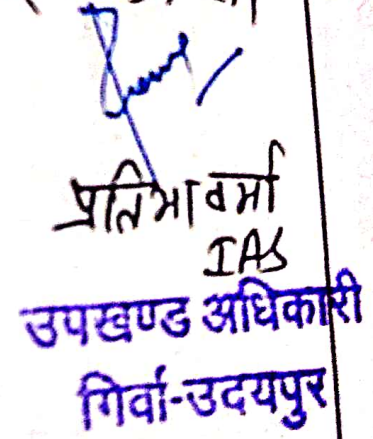 प्रतिभा वर्मा
IAS
उपखण्ड अधिकारी
गिर्वा-उदयपुर